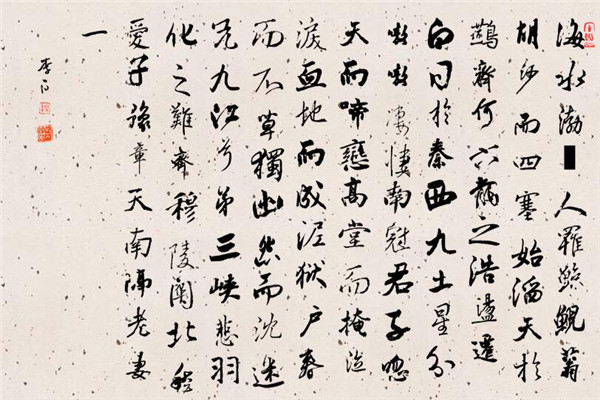 海水渤█人羅鯨鯢蓊
胡沙而四塞始滔天於
鷰齊何六龍之浩盪遷
白日於秦西九土星分
嗷嗷凄悽南冠君子唿
天而啼戀高堂而掩泣
淚血地而成泥獄戶春
而不草獨幽怨而沈迷
兄九江兮弟三峽悲羽
化之難齊穆陵關北愁
愛子豫章天南隔老妻
一
李白